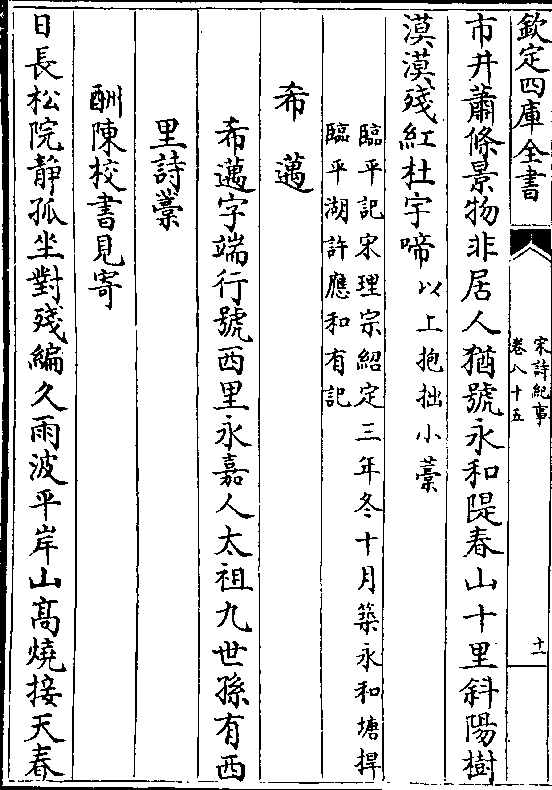 欽定四庫全書
宋詩紀事
卷八十五
十一
市井蕭條景物非居人猶號永和隄春山十里斜陽樹
漠漠殘紅杜宇啼 以上抱拙小藁
臨平記宋理宗紹定三年冬十月築永和塘捍
臨平湖許應和有記
希邁
希邁字端行號西里永嘉人太祖九世孫有西
里詩藁
酬陳校書見寄
日長松院靜孤坐對殘編久雨波平岸山髙燒接天春